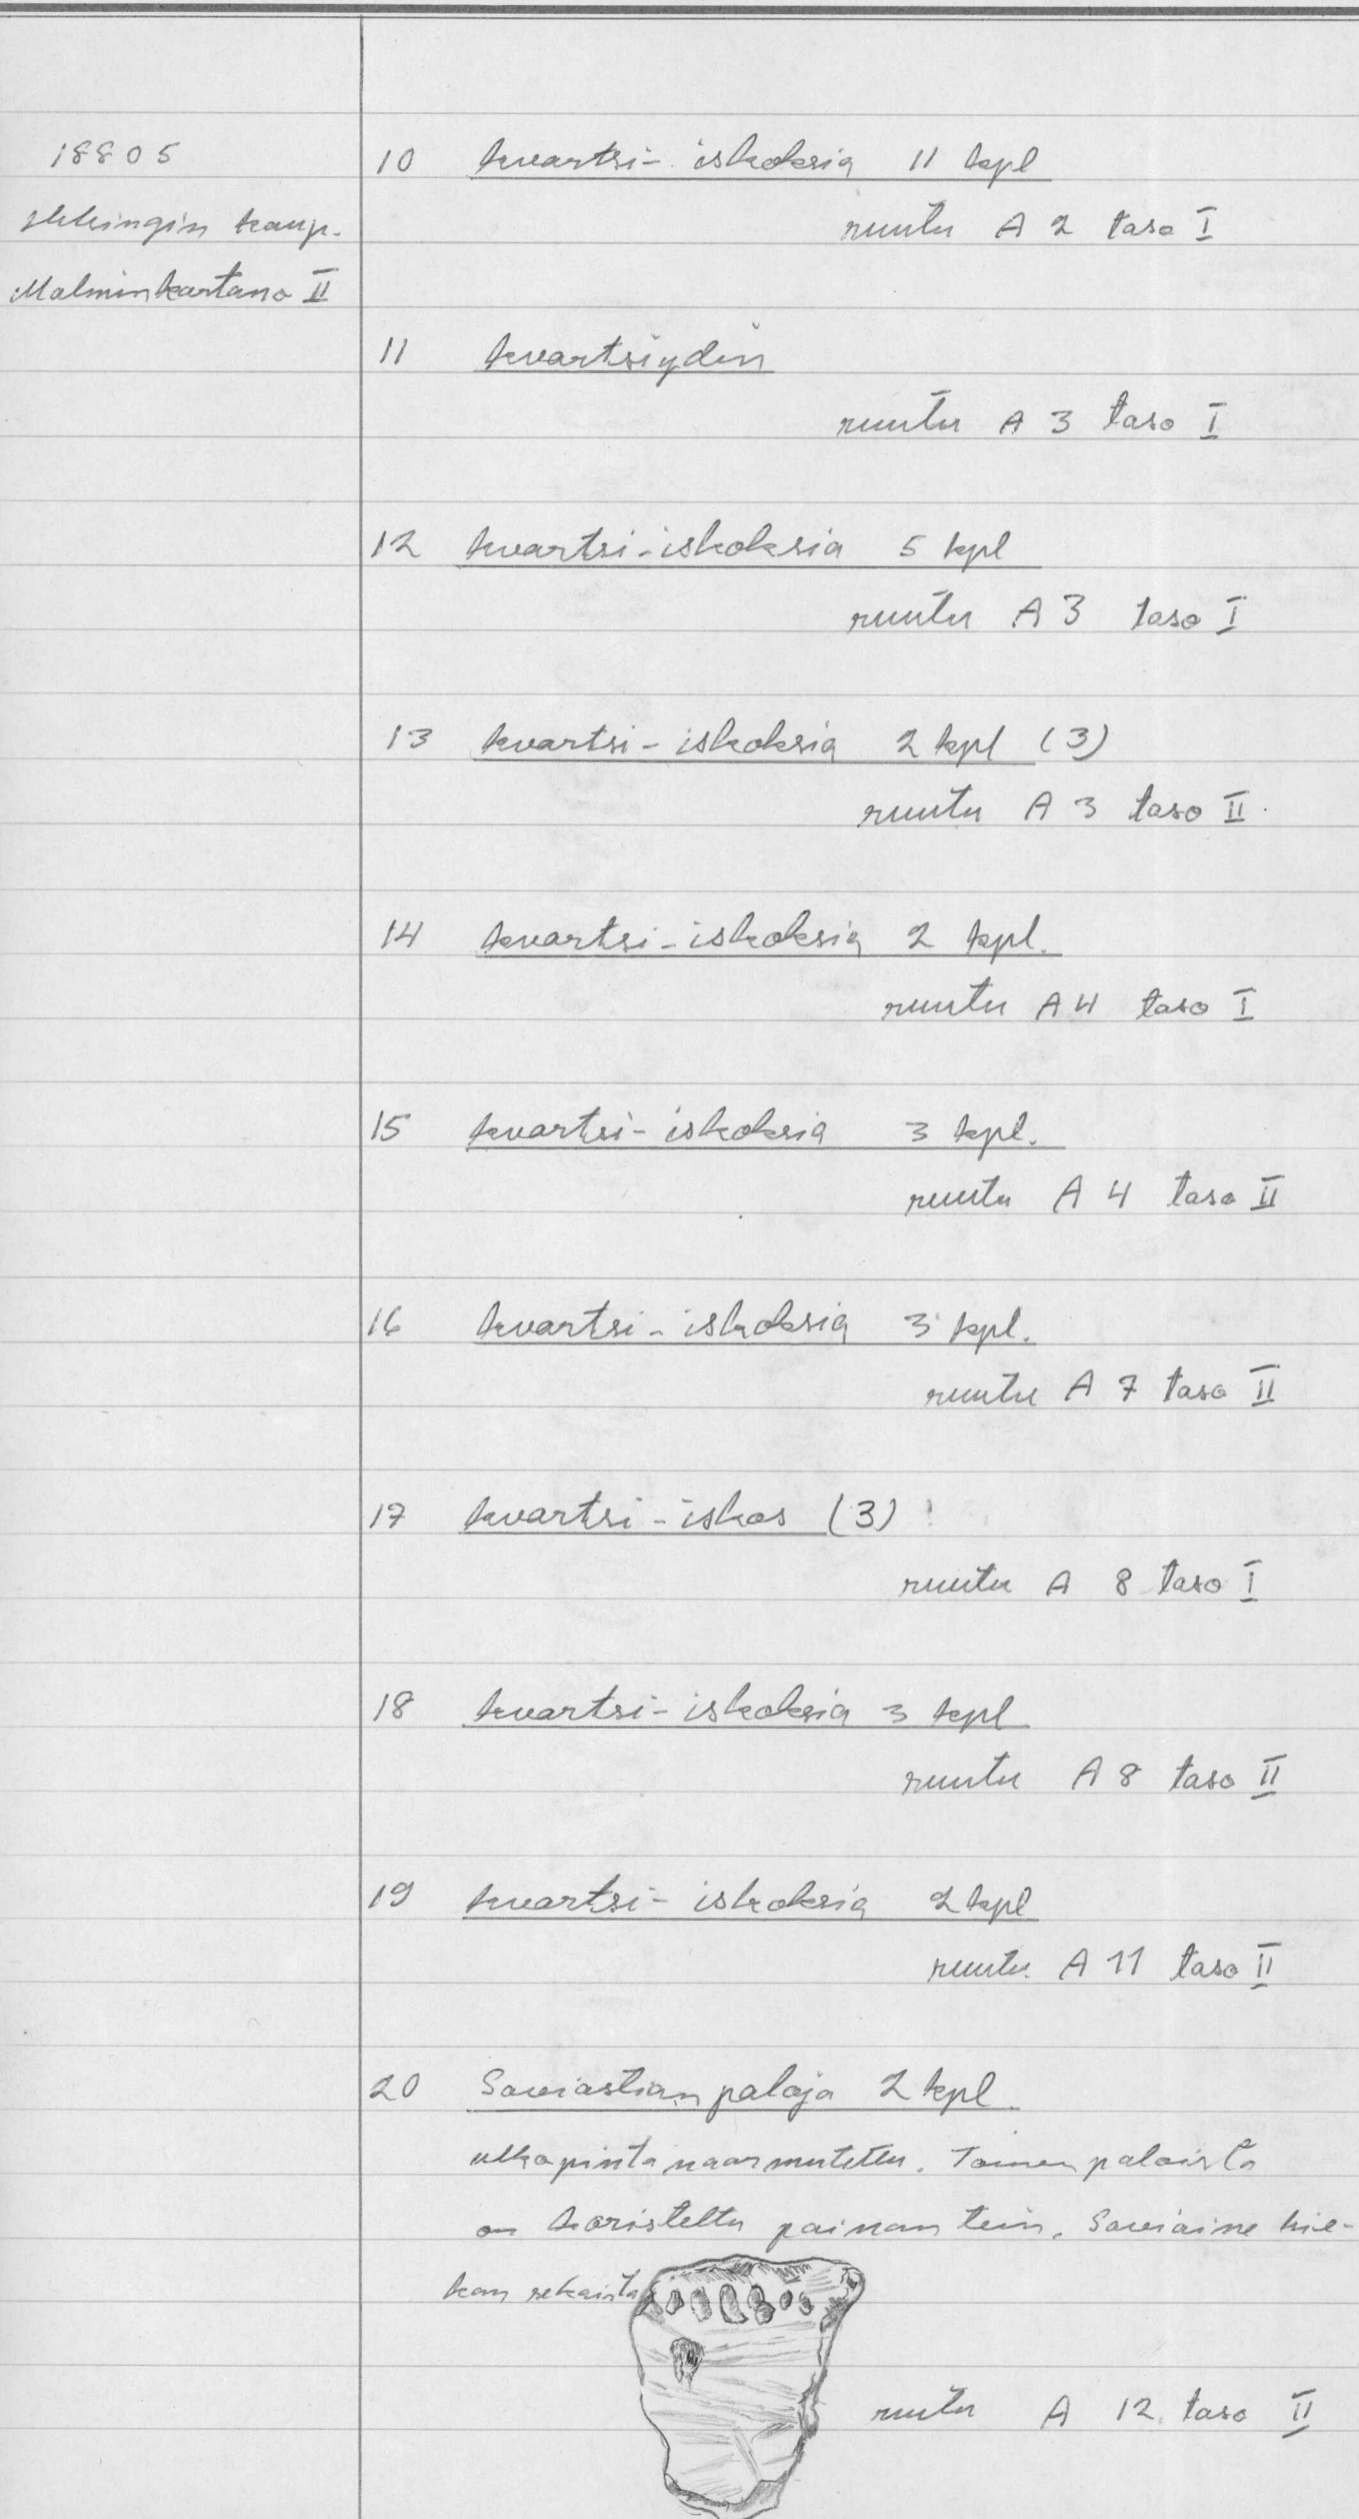 18805
Helsingin kaup.
Malminkartano II
10 kvartsi-iskoksia 11 kpl
ruutu A 2 taso I
11 kvartsiydin
ruutu A 3 taso I
12 kvartsi-iskoksia 5 kpl
ruutu A 3 taso I
13 kvartsi-iskoksia 2 kpl (3)
ruutu A 3 taso II
14 kvartsi-iskoksia 2 kpl.
ruutu A 4 taso I
15 kvartsi-iskoksia 3 kpl.
ruutu A 4 taso II
16 kvartsi-iskoksia 3 kpl.
ruutu A 7 taso II
17 kvartsi-iskos (3)
ruutu A 8 taso I
18 kvartsi-iskoksia 3 kpl
ruutu A 8 taso II
19 kvartsi-iskoksia 2 kpl
ruutu A 11 taso II
20 Saviastian paloja 2 kpl.
ulkopinta naarmutettu. Toinen paloista
on koristeltu painantein. Saviaine hie-
kan sekaista
ruutu A 12 taso II